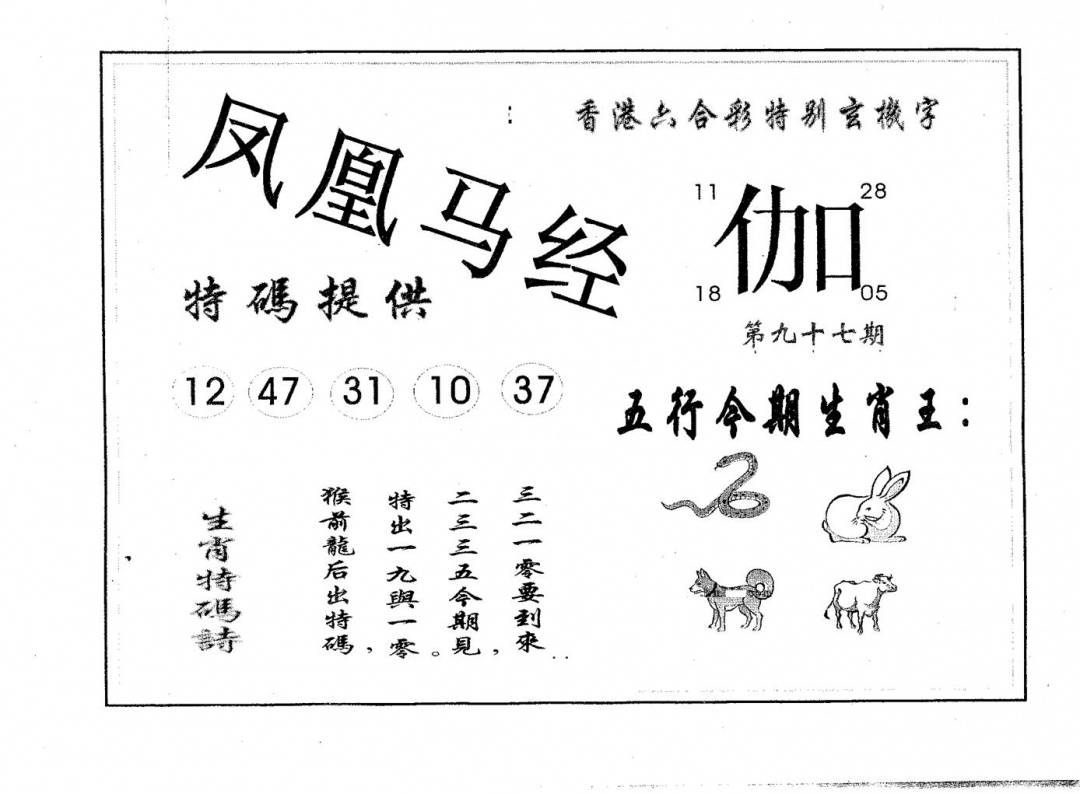 凤凰马经
香港六合彩特别玄機字
11 28
伽
18 05
第九十七期
特碼提供
12 47 31 10 37
五行今期生肖王：
生肖特碼詩
猴前龍后出特碼，
特出一九與一零。
二三三五今期見，
三二一零要到來